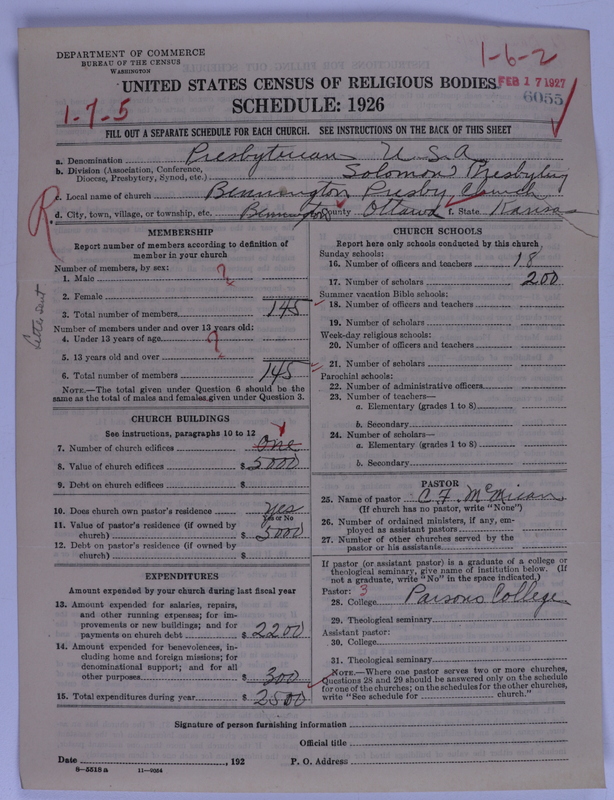 DEPARTMENT OF COMMERCE
BUREAU OF THE CENSUS
WASHINGTON
1-6-2
UNITED STATES CENSUS OF RELIGIOUS BODIES
FEB 17 1927
6055
1-7-5
SCHEDULE: 1926
FILL OUT A SEPARATE SCHEDULE FOR EACH CHURCH. SEE INSTRUCTIONS ON THE BACK OF THIS SHEET
a. Denomination Presbyterian U.S.A.
b. Division (Association, Conference, Diocese, Presbytery, Synod, etc.) Solomon Presbytery
c. Local name of church Bennington Presby Church
d. City, town, village, or township, etc. Bennington County Ottawa f. State Kansas
R.
Letter sent
MEMBERSHIP
Report number of members according to definition of
member in your church
Number of members, by sex:
1. Male ?
2. Female
3. Total number of members 145
Number of members under and over 13 years old:
4. Under 13 years of age ?
5. 13 years old and over
6. Total number of members 145
NOTE.—The total given under Question 6 should be the
same as the total of males and females given under Question 3.
CHURCH BUILDINGS
See instructions, paragraphs 10 to 12
7. Number of church edifices One
8. Value of church edifices $ 5000
9. Debt on church edifices $
10. Does church own pastor's residence Yes
Yes or No
11. Value of pastor's residence (if owned by
church) $ 5000
12. Debt on pastor's residence (if owned by
church) $
EXPENDITURES
Amount expended by your church during last fiscal year
13. Amount expended for salaries, repairs,
and other running expenses; for im-
provements or new buildings; and for
payments on church debt $ 2200
14. Amount expended for benevolences, in-
cluding home and foreign missions; for
denominational support; and for all
other purposes $ 300
15. Total expenditures during year $ 2500
CHURCH SCHOOLS
Report here only schools conducted by this church
Sunday schools:
16. Number of officers and teachers 18
17. Number of scholars 200
Summer vacation Bible schools:
18. Number of officers and teachers
19. Number of scholars
Week-day religious schools:
20. Number of officers and teachers
21. Number of scholars
Parochial schools:
22. Number of administrative officers
23. Number of teachers—
a. Elementary (grades 1 to 8)
b. Secondary
24. Number of scholars—
a. Elementary (grades 1 to 8)
b. Secondary
PASTOR
25. Name of pastor C. F.
(If church has no pastor, write "None")
26. Number of ordained ministers, if any, em-
ployed as assistant pastors
27. Number of other churches served by the
pastor or his assistants
If pastor (or assistant pastor) is a graduate of a college or
theological seminary, give name of institution below. (If
not a graduate, write "No" in the space indicated.)
Pastor: 3
28. College Parsons College
29. Theological seminary
Assistant pastor:
30. College
31. Theological seminary
NOTE.—Where one pastor serves two or more churches,
Questions 28 and 29 should be answered only on the schedule
for one of the churches; on the schedules for the other churches,
write "See schedule for church."
Signature of person furnishing information
Official title
Date , 192 P. O. Address
8—5518 a 11—9054